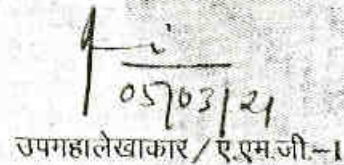 05/03/21
उपमहालेखाकार / ए.एम.जी-I